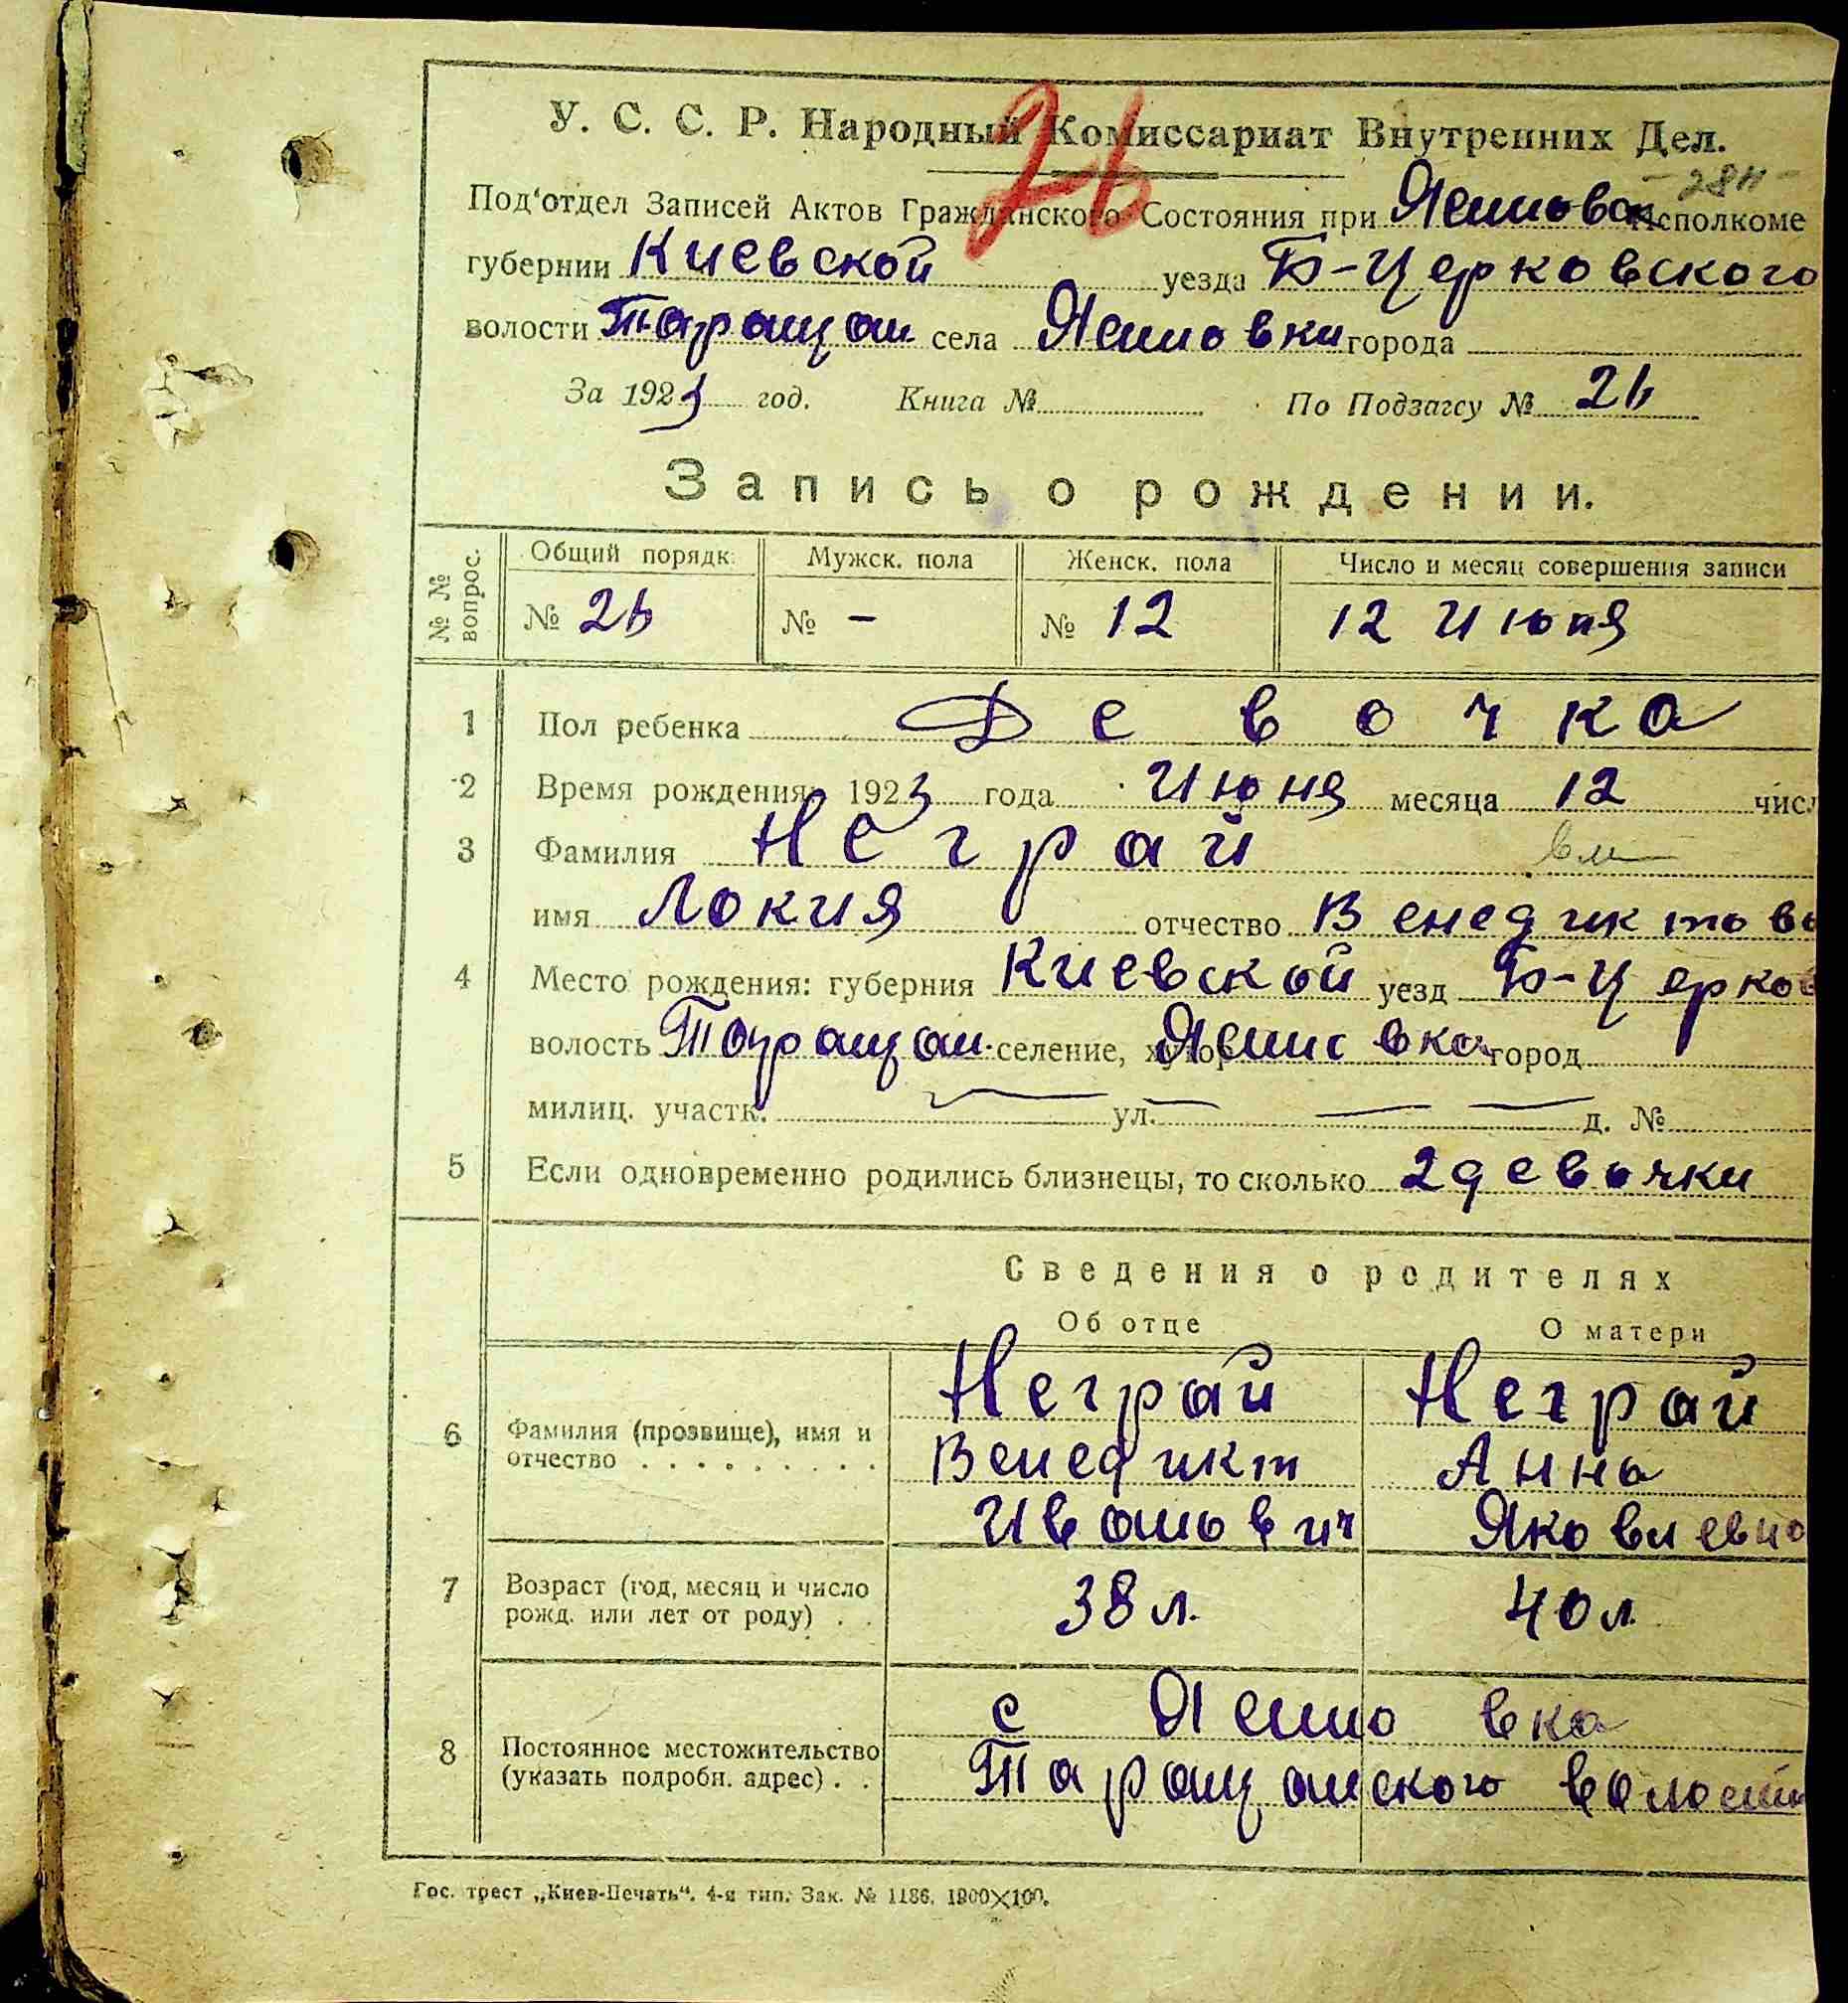 У. С. С. Р. Народный Комиссариат Внутренних Дел.
26
28н
Под'отдел Записей Актов Гражданского Состояния при Лешовск Исполкоме
губернии Киевской уезда Б-Церковского
волости Таращан села Лешовки города
За 1923 год. Книга № По Подзагсу № 26
Запись о рождении.
№ № вопрос. Общий порядк. Мужск. пола Женск. пола Число и месяц совершения записи
№ 26 № - № 12 12 Июня
1 Пол ребенка Девочка
2 Время рождения: 1923 года Июня месяца 12 числ
3 Фамилия Неграй
имя Локия отчество Венедиктовн
4 Место рождения: губерния Киевской уезд Б-Церков
волость Таращан. селение, хутор город
милиц. участк. ул. д. №
5 Если одновременно родились близнецы, то сколько 2 девочки
Сведения о родителях
Об отце О матери
6 Фамилия (прозвище), имя и отчество Неграй Неграй
Венедикт Анна
Иванович Яковлевна
7 Возраст (год, месяц и число рожд. или лет от роду) 38 л. 40 л.
8 Постоянное местожительство (указать подробн. адрес) с
Таращанского волости
Гос. трест „Киев-Печать“. 4-я тип. Зак. № 1186. 1800×100.